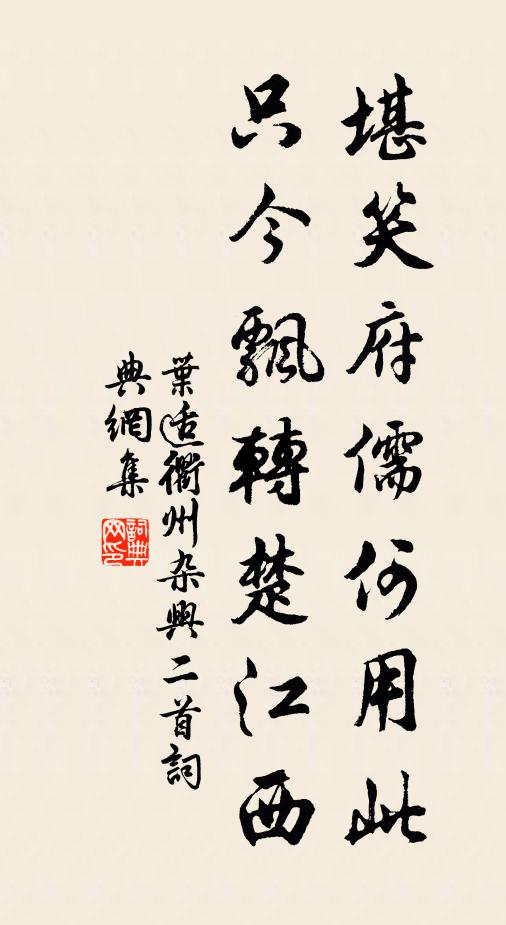 堪笑府儒何用此
只今飄轉楚江西
葉适衢州杂興二首詞
典網集
詞典网印